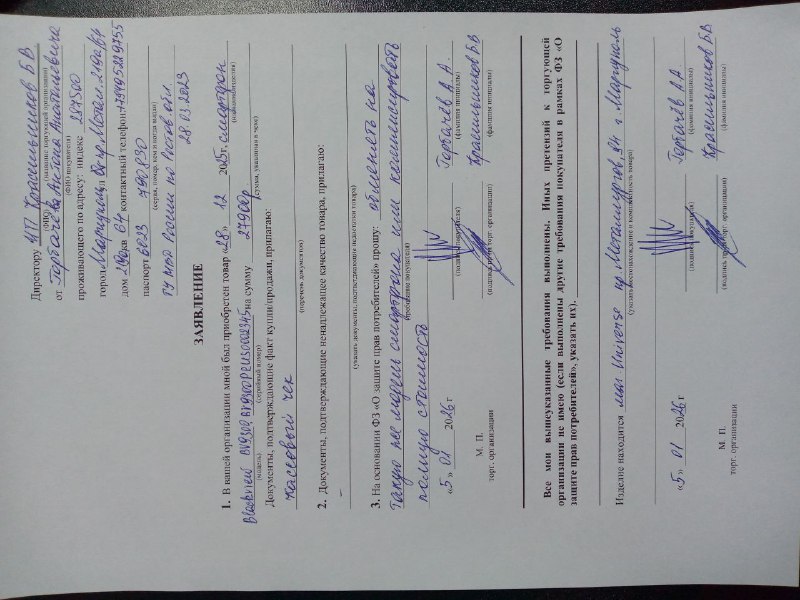 Директору ИП Красильников Б В
(ФИО) (название торгующей организации)
от Горбачёва Антона Анатольевича
(ФИО покупателя)
проживающего по адресу: индекс 287500
город Мариуполь
дом кв 64 контактный телефон: +79495219755
паспорт 6023 790830
(серия, номер, кем и когда выдан)
ГУ МВД России по Ростов. обл.
28.03.2023
ЗАЯВЛЕНИЕ
1. В вашей организации мной был приобретен товар «28» 12 2025г. смартфон
(наименование изделия)
Blackview BV9300 на сумму 27900р
(модель) (серийный номер) (сумма, указанная в чеке)
Документы, подтверждающие факт купли/продажи, прилагаю:
кассовый чек
(перечень документов)
2. Документы, подтверждающие ненадлежащее качество товара, прилагаю:
–
(указать документы, подтверждающие недостатки товара)
3. На основании ФЗ «О защите прав потребителей» прошу: обменять на
такую же модель смартфона или компенсировать
(требования покупателя)
полную стоимость
«5» 01 2026 г Горбачёв А.А.
(подпись покупателя) (фамилия инициалы)
Красильников БВ
М. П. (подпись торг. организации) (фамилия инициалы)
торг. организации
Все мои вышеуказанные требования выполнены. Иных претензий к торгующей
организации не имею (если выполнены другие требования покупателя в рамках ФЗ «О
защите прав потребителей», указать их).
Изделие находится маг Universe пр. Металлургов, 84 г. Мариуполь
(указать местонахождение и комплектность товара)
«5» 01 2026 г Горбачёв А А
(подпись покупателя) (фамилия инициалы)
Красильников БВ
М. П. (подпись торг. организации) (фамилия инициалы)
торг. организации